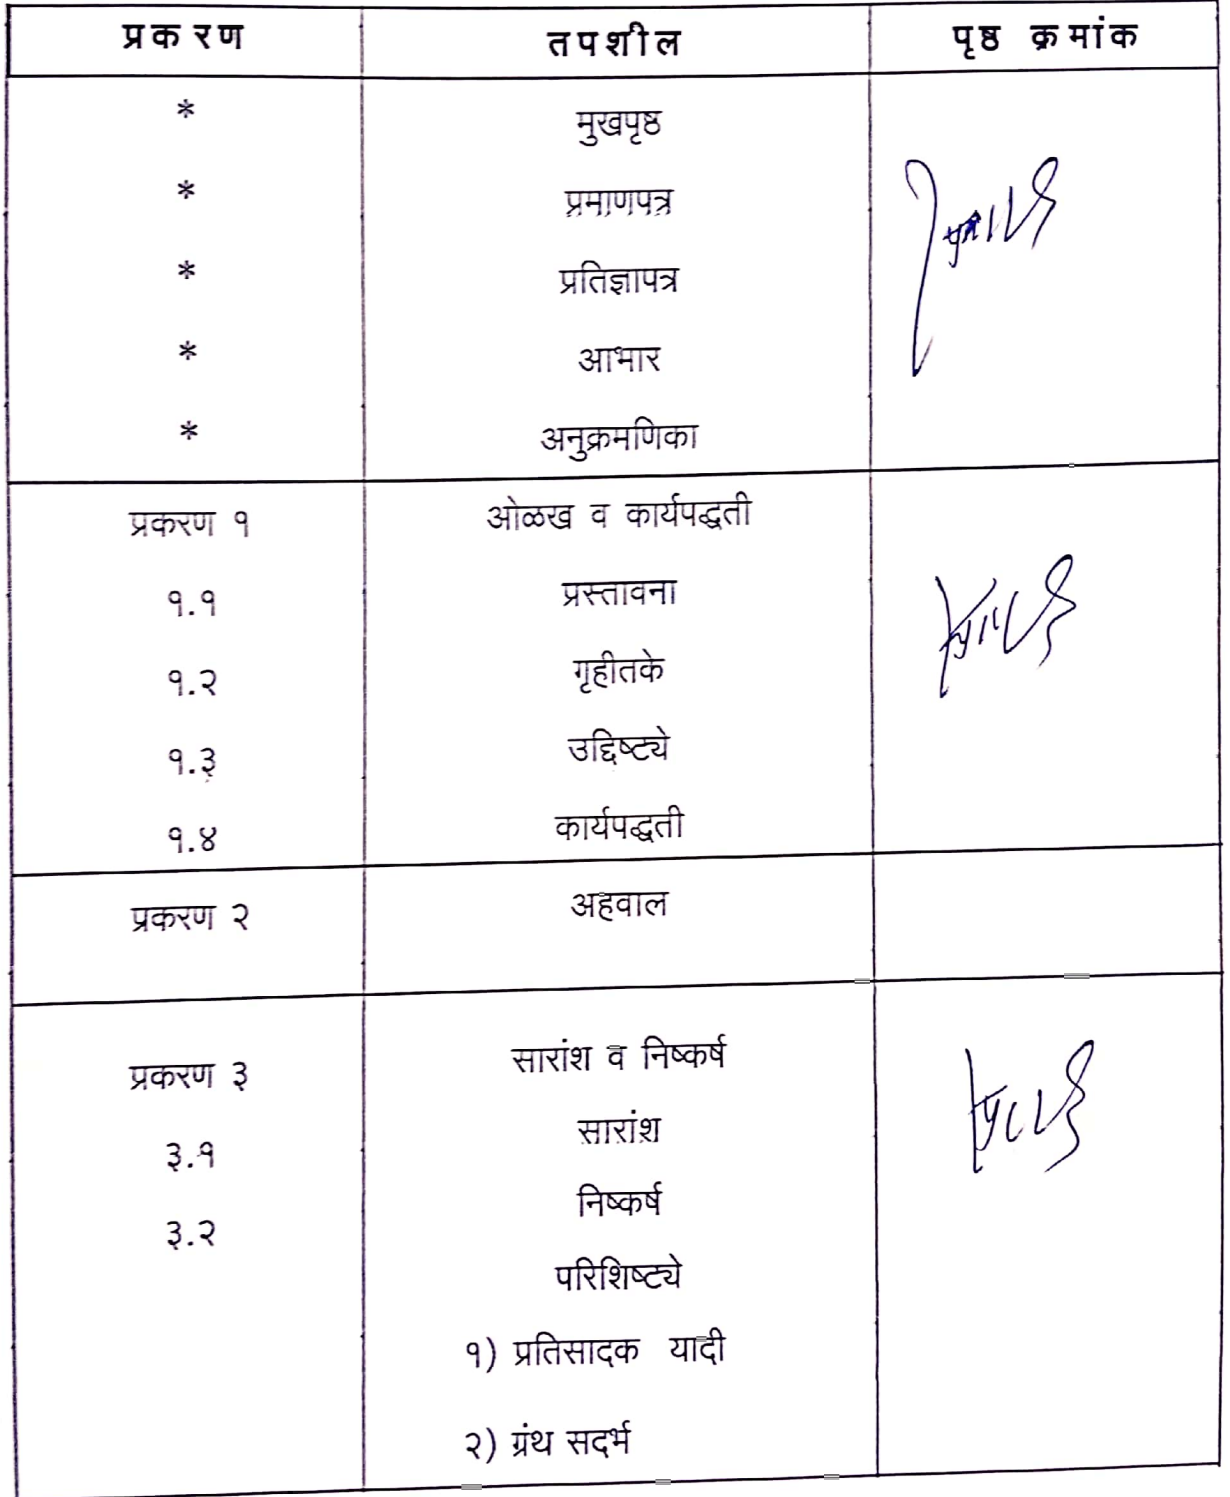 प्रकरण तपशील पृष्ठ क्रमांक
* मुखपृष्ठ
* प्रमाणपत्र
* प्रतिज्ञापत्र
* आभार
* अनुक्रमणिका
प्रकरण १ ओळख व कार्यपद्धती
१.१ प्रस्तावना
१.२ गृहीतके
१.३ उद्दिष्ट्ये
१.४ कार्यपद्धती
प्रकरण २ अहवाल
प्रकरण ३ सारांश व निष्कर्ष
३.१ सारांश
३.२ निष्कर्ष
परिशिष्ट्ये
१) प्रतिसादक यादी
२) ग्रंथ सदर्भ